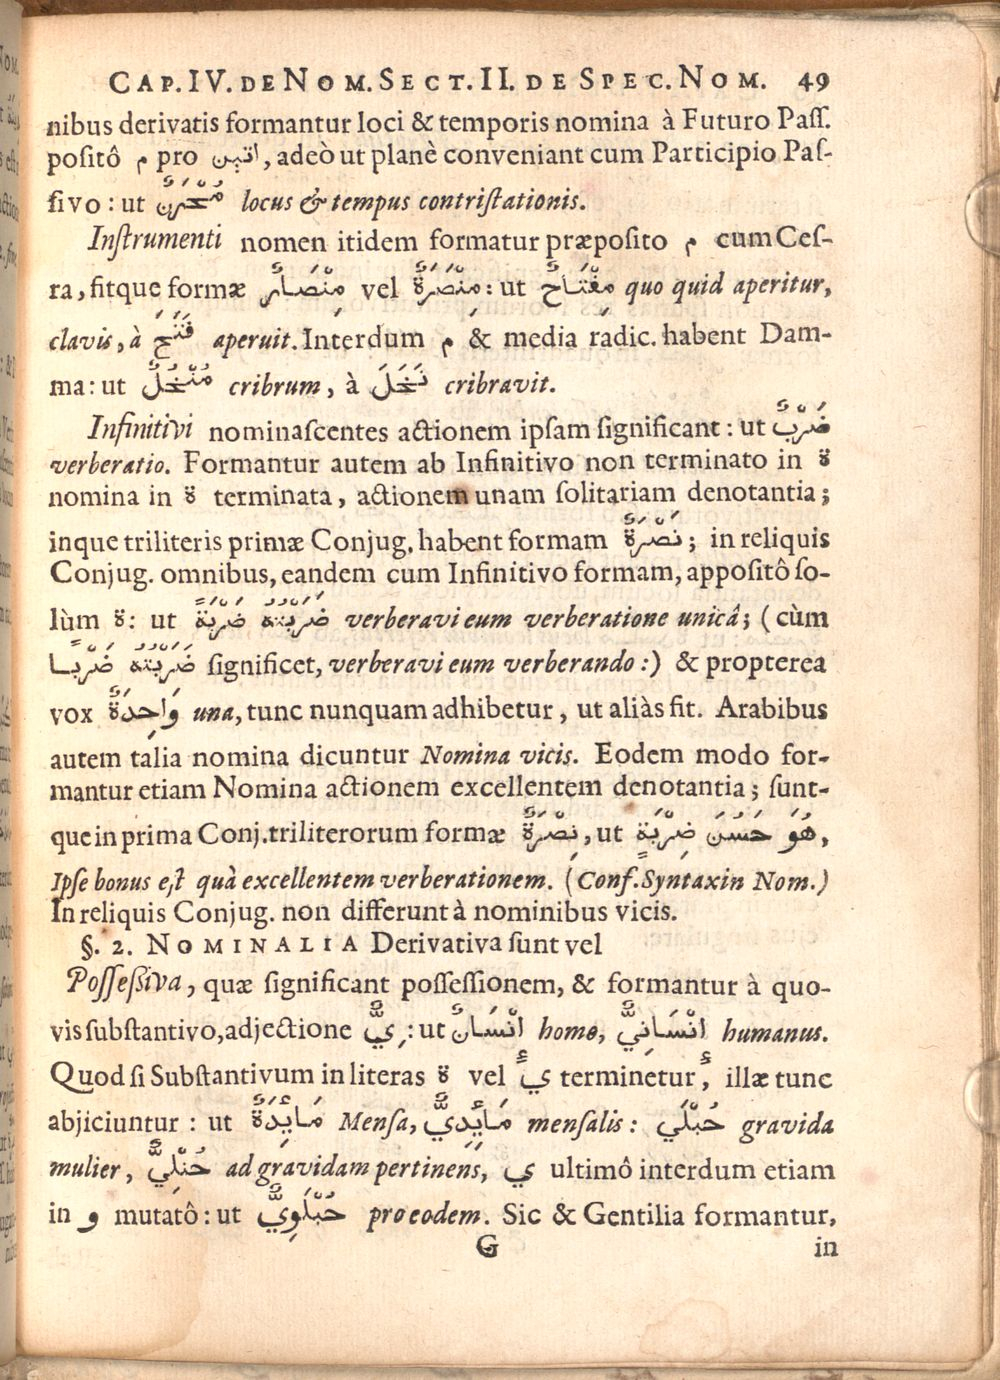 CAP. IV. DE NOM. SECT. II. DE SPEC. NOM. 49
nibus derivatis formantur loci & temporis nomina à Futuro Paſſ.
poſitô م pro اتين, adeò ut planè conveniant cum Participio Paſ-
ſivo: ut مُحْزَنٌ locus & tempus contriſtationis.
Inſtrumenti nomen itidem formatur præpoſito م cum Ceſ-
ra, fitque formæ مِنْصَارٌ vel مِنْصَرَةٌ: ut مِفْتَاحٌ quo quid aperitur,
clavis, à فَتَحَ aperuit. Interdum م & media radic. habent Dam-
ma: ut مُنْخُلٌ cribrum, à نَخَلَ cribravit.
Infinitivi nominaſcentes actionem ipſam ſignificant: ut ضَرْبٌ
verberatio. Formantur autem ab Infinitivo non terminato in ة
nomina in ة terminata, actionem unam ſolitariam denotantia;
inque triliteris primæ Conjug. habent formam نَصْرَةٌ; in reliquis
Conjug. omnibus, eandem cum Infinitivo formam, appoſitô ſo-
lùm ة: ut ضَرَبْتُهُ ضَرْبَةً verberavi eum verberatione unicâ; (cùm
ضَرَبْتُهُ ضَرْبًا ſignificet, verberavi eum verberando:) & propterea
vox وَاحِدَةٌ una, tunc nunquam adhibetur, ut aliàs fit. Arabibus
autem talia nomina dicuntur Nomina vicis. Eodem modo for-
mantur etiam Nomina actionem excellentem denotantia; ſunt-
que in prima Conj. triliterorum formæ نِصْرَةٌ, ut هُوَ حَسُنَ ضِرْبَةٍ,
Ipſe bonus eſt quà excellentem verberationem. (Conf. Syntaxin Nom.)
In reliquis Conjug. non differunt à nominibus vicis.
§. 2. NOMINALIA Derivativa ſunt vel
Poſſeſſiva, quæ ſignificant poſſeſſionem, & formantur à quo-
vis ſubſtantivo, adjectione ـِيٌّ: ut انْسَانٌ homo, انْسَانِيٌّ humanus.
Quod ſi Subſtantivum in literas ة vel ي terminetur, illæ tunc
abjiciuntur: ut مَايِٕدَةٌ Menſa, مَايِٕدِيٌّ menſalis: حُبْلَي gravida
mulier, حُبْلِيٌّ ad gravidam pertinens, ي ultimô interdum etiam
in و mutatô: ut حُبْلَوِيٌّ pro eodem. Sic & Gentilia formantur,
G in